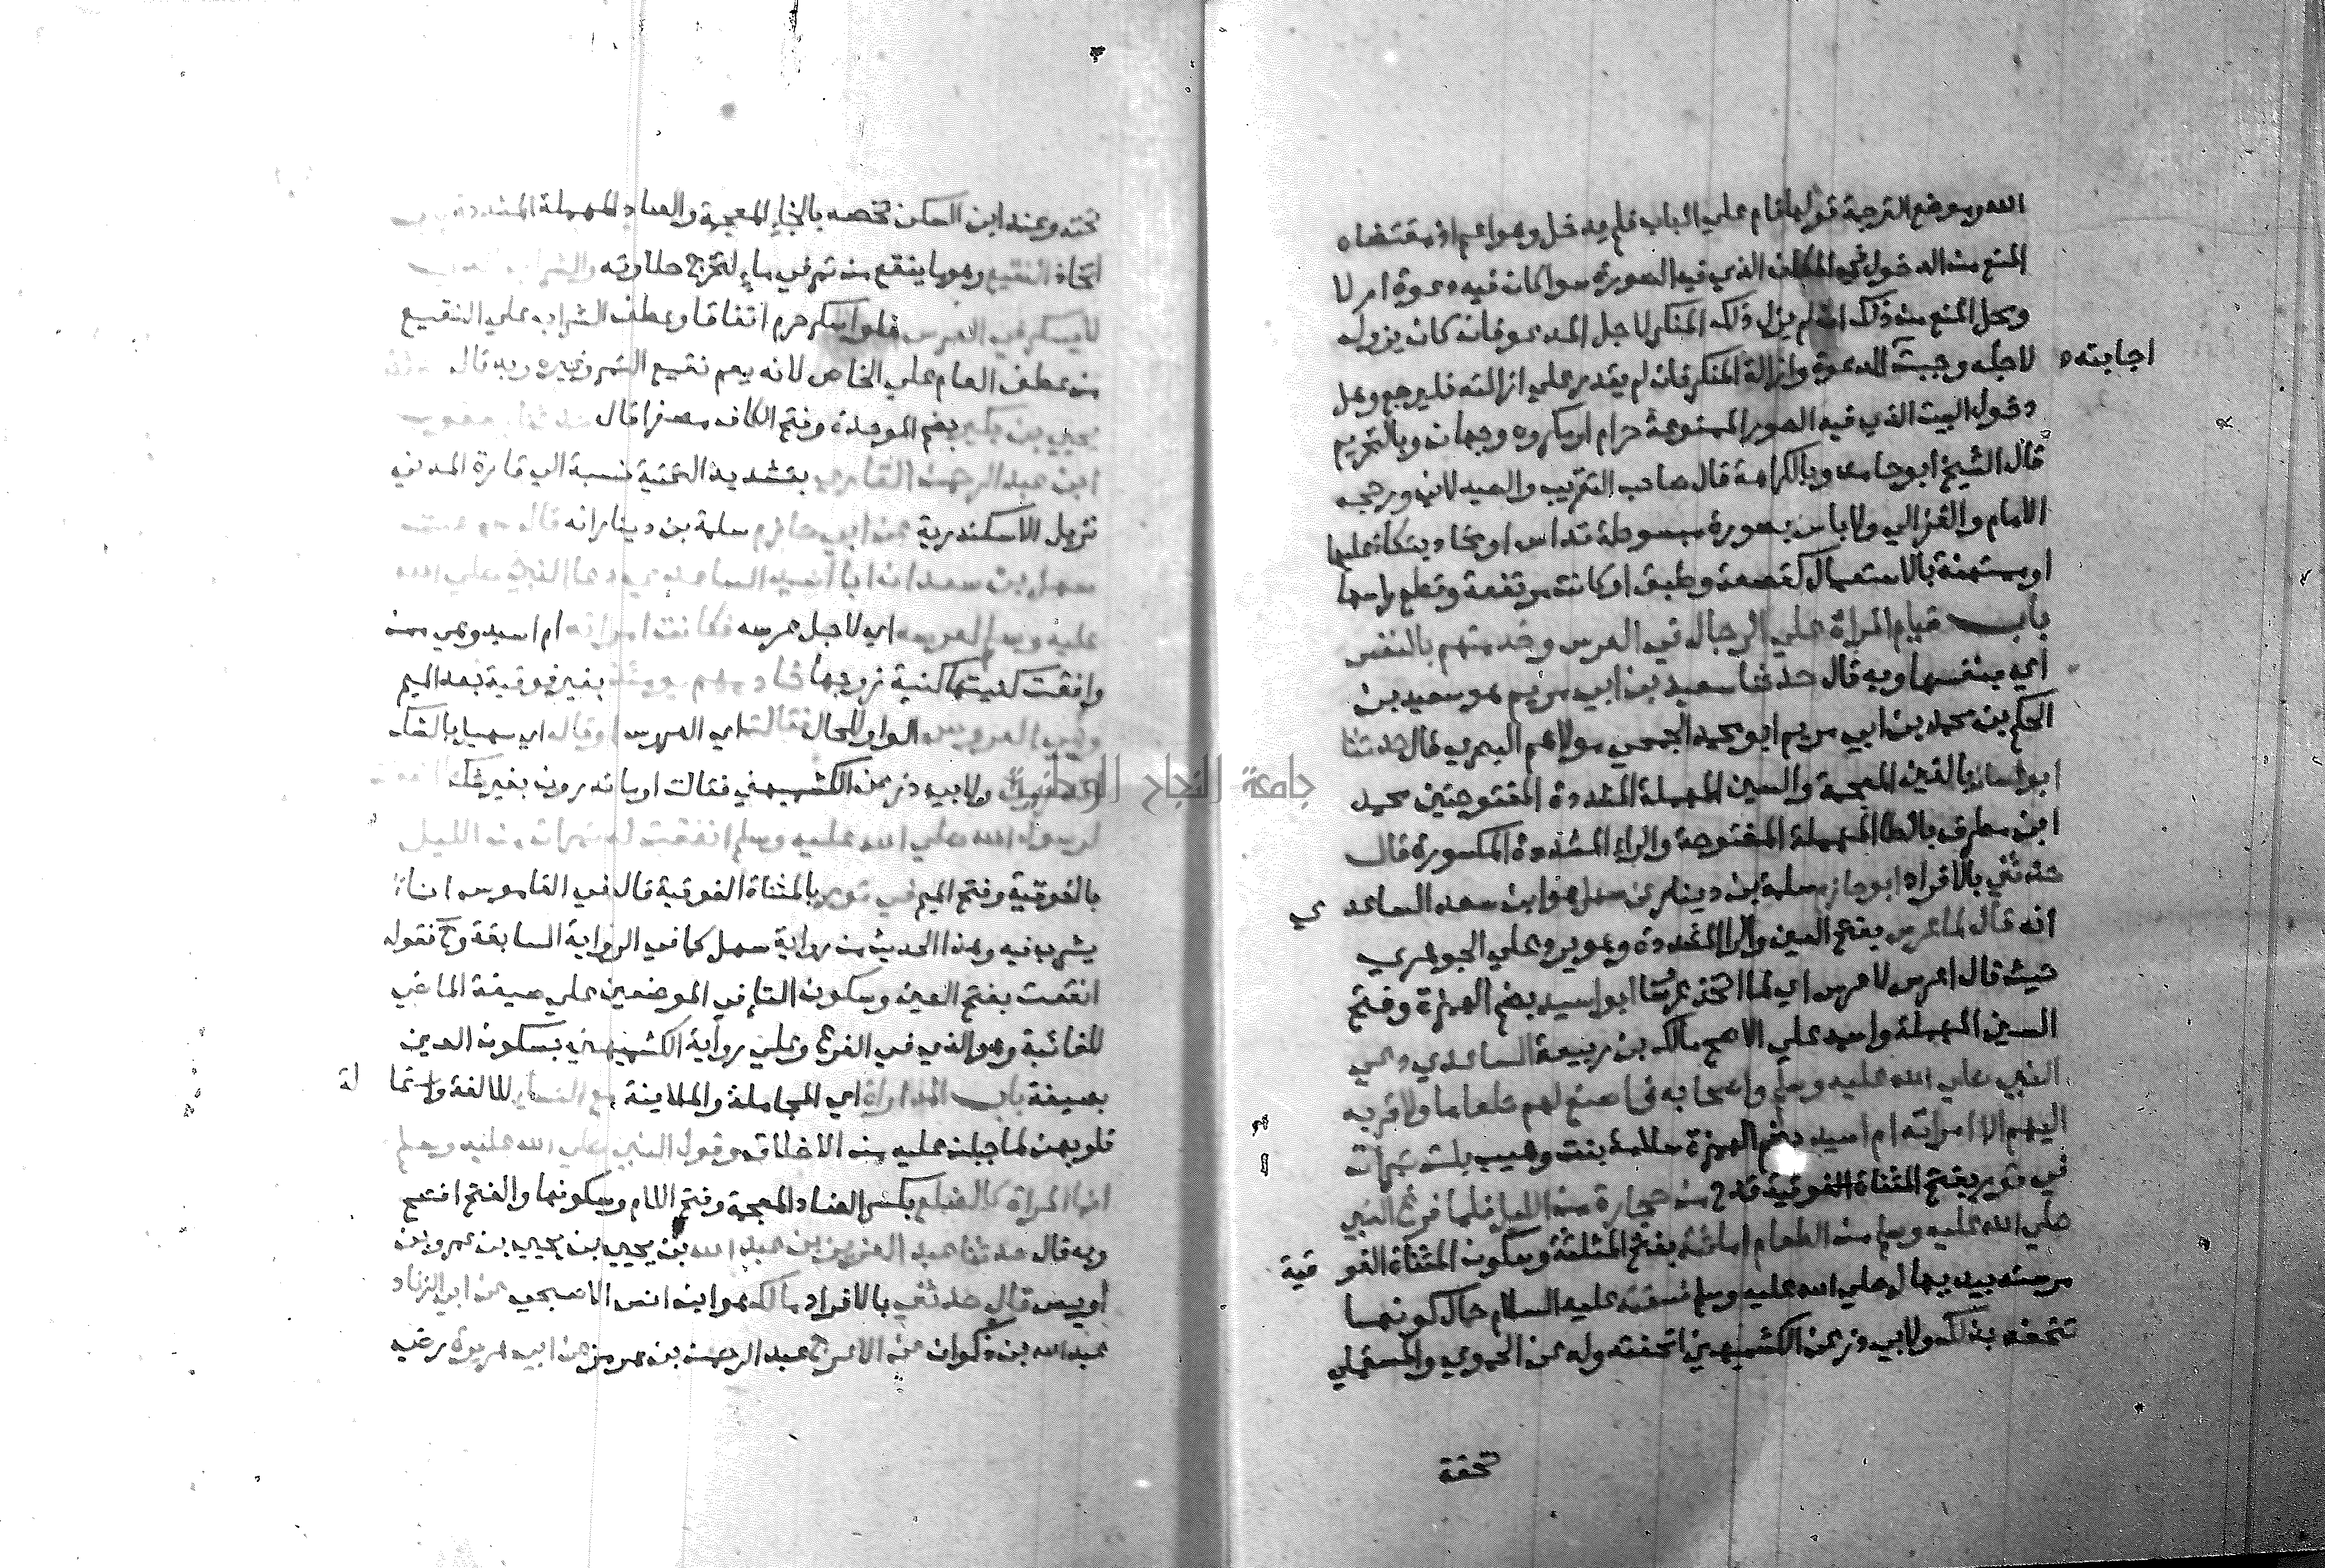 الله وموضع الترجمة قولها قام علي الباب فلم يدخل وهو اعم اذ مقتضاه
المنع من الدخول في المكان الذي فيه الصورة سوا كان فيه دعوة ام لا
ومحل المنع من ذلك ان لم يزل ذلك المنكر لاجل المدعو فانه كان يزول
لاجله وجبت الدعوة وازالة المنكر فان لم يقدر علي ازالته فليرجع وهل
اجابته
دخول البيت الذي فيه الصور الممنوعة حرام او مكروه وجهان وبالتحريم
قال الشيخ ابو حامد وبالكراهة قال صاحب التقريب والصيدلاني ورجحه
الامام والغزالي ولا باس بصورة مبسوطة تداس او مخاد يتكا عليها
او ممتهنة بالاستعمال كقصعة وطبق او كانت مرتفعة وقطع راسها
باب قيام المراة علي الرجال في العرس وخدمتهم بالنفس
اي بنفسها وبه قال حدثنا سعيد بن ابي مريم هو سعيد بن
الحكم بن محمد بن ابي مريم ابو محمد الجمحي مولاهم البصري قال حدثنا
ابو غسان بالغين المعجمة والسين المهملة المشددة المفتوحتين محمد
ابن مطرف بالطا المهملة المفتوحة والراء المشددة المكسورة قال
حدثني بالافراد ابو حازم سلمة بن دينار عن سهل هو ابن سعد الساعدي
انه قال لما عرس بفتح العين والرا المشددة وهو يرد علي الجوهري
حيث قال اعرس لا عرس اي لما اتخذ عرسا ابو اسيد بضم الهمزة وفتح
السين المهملة واسمه علي الاصح مالك بن ربيعة الساعدي دعي
النبي صلي الله عليه وسلم واصحابه فما صنع لهم طعاما ولا قربه
اليهم الا امراته ام اسيد بضم الهمزة سلامة بنت وهيب بلت تمرات
في تور بفتح المثناة الفوقية قدح من حجارة من الليل فلما فرغ النبي
صلي الله عليه وسلم من الطعام اماثته بفتح المثلثة وسكون المثناة الفوقية
مرسته بيدها له صلي الله عليه وسلم فسقته عليه السلام حال كونها
تتحفه بذلك ولابي ذر عن الكشميهني اتحفته وله عن الحموي والمستملي
تحفة
تحته وعند ابن السكن تخصه بالخاء المعجمة والصاد المهملة المشددة باب
اتخاذ النقيع وهو ما ينقع من تمر في ماء لتخرج حلاوته والشراب الذي
لا يسكر في العرس فلو اسكر حرم اتفاقا وعطف الشراب علي النقيع
من عطف العام علي الخاص لانه يعم نقيع التمر وغيره وبه قال حدثنا
يحيي بن بكير بضم الموحدة وفتح الكاف مصغرا قال حدثنا يعقوب
ابن عبد الرحمن القاري بتشديد التحتية نسبة الي قارة المدني
نزيل الاسكندرية عن ابي حازم سلمة بن دينار انه قال سمعت
سهل بن سعد ان ابا اسيد الساعدي دعا النبي صلي الله
عليه وسلم لعرسه اي لاجل عرسه فكانت امراته ام اسيد وهي ممن
وافقت كنيتها كنية زوجها خادمهم يومئذ بغير فوقية بعد الميم
وهي العروس الواو للحال فقالت اي العروس او قال اي سهل بالشك
اتدرون ولابي ذر عن الكشميهني فقالت او ما تدرون بغير شك ما انقعت
لرسول الله صلي الله عليه وسلم انقعت له تمرات من الليل
بالفوقية وفتح الميم في تور بالمثناة الفوقية قال في القاموس اناء
يشرب فيه وهذا الحديث من رواية سهل كما في الرواية السابقة وح فقوله
انقعت بفتح العين وسكون التاء في الموضعين علي صيغة الماضي
للغائبة وهو الذي في الفرع وعلي رواية الكشميهني بسكون العين
بصيغة باب المداراة اي المجاملة والملاينة مع النساء للالفة واستمالة
قلوبهن لما جبلن عليه من الاخلاق وقول النبي صلي الله عليه وسلم
انما المراة كالضلع بكسر الضاد المعجمة وفتح اللام وسكونها والفتح افصح
وبه قال حدثنا عبد العزيز بن عبد الله بن يحيي بن يحيي بن عمرو بن
اويس قال حدثني بالافراد مالك هو ابن انس الاصبحي عن ابي الزناد
عبد الله بن ذكوان عن الاعرج عبد الرحمن بن هرمز عن ابي هريرة رضي
جامعة النجاح الوطنية